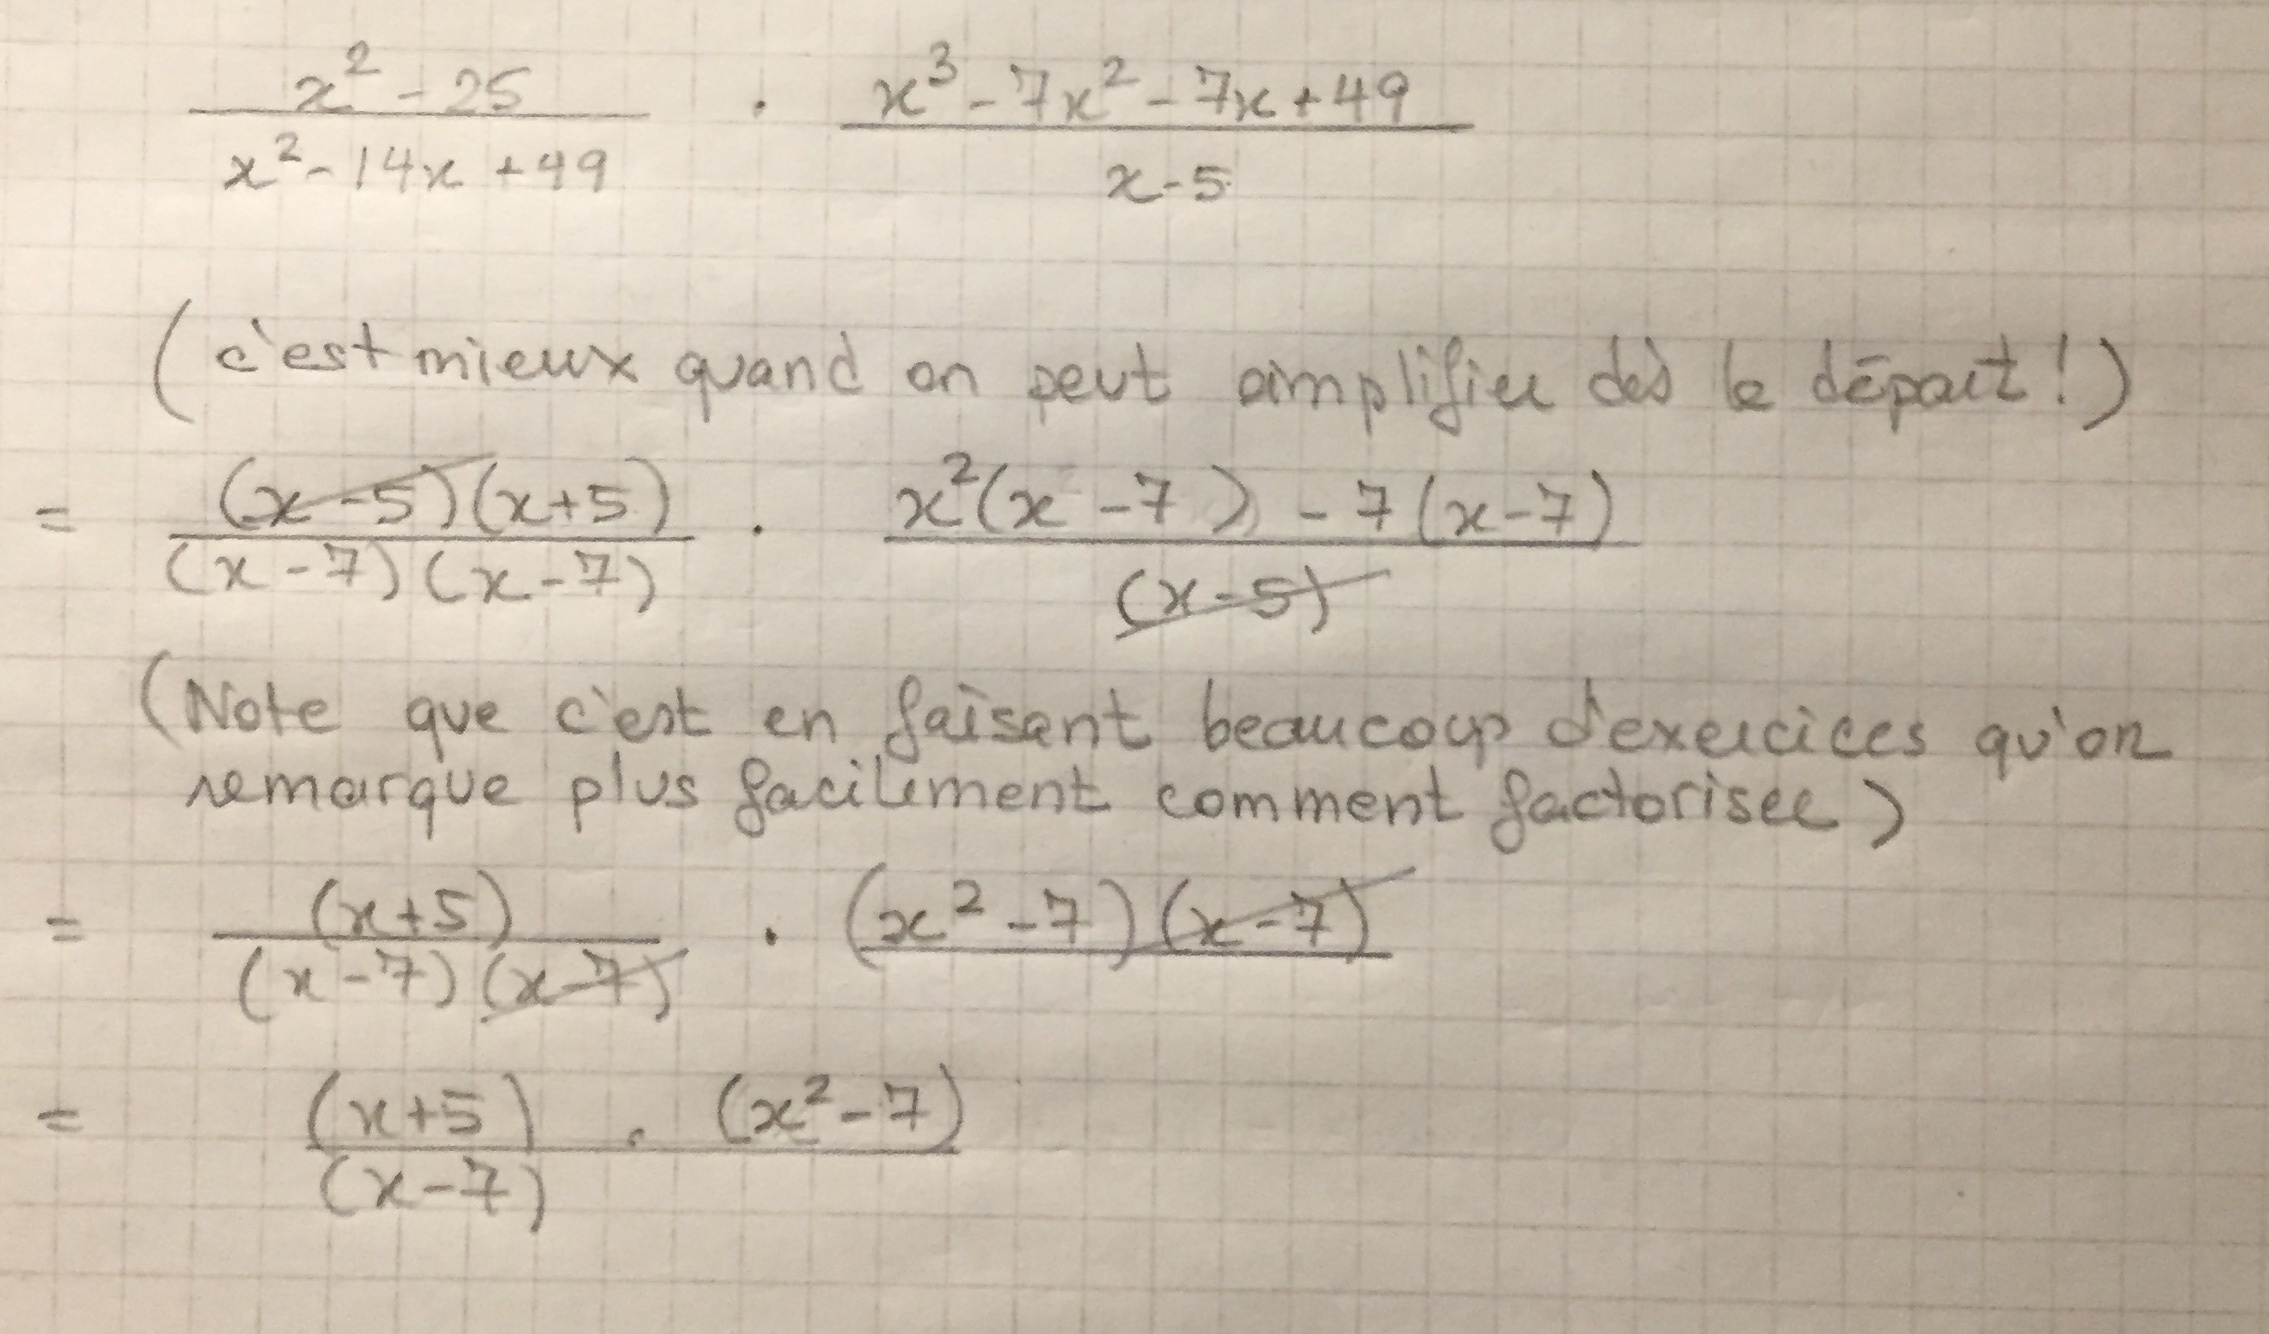 x² - 25 / x² - 14x + 49 · x³ - 7x² - 7x + 49 / x - 5
(c'est mieux quand on peut simplifier dès le départ!)
= (x - 5)(x + 5) / (x - 7)(x - 7) · x²(x - 7) - 7(x - 7) / (x - 5)
(Note que c'est en faisant beaucoup d'exercices qu'on
remarque plus facilement comment factoriser)
= (x + 5) / (x - 7)(x - 7) · (x² - 7)(x - 7)
= (x + 5) · (x² - 7) / (x - 7)